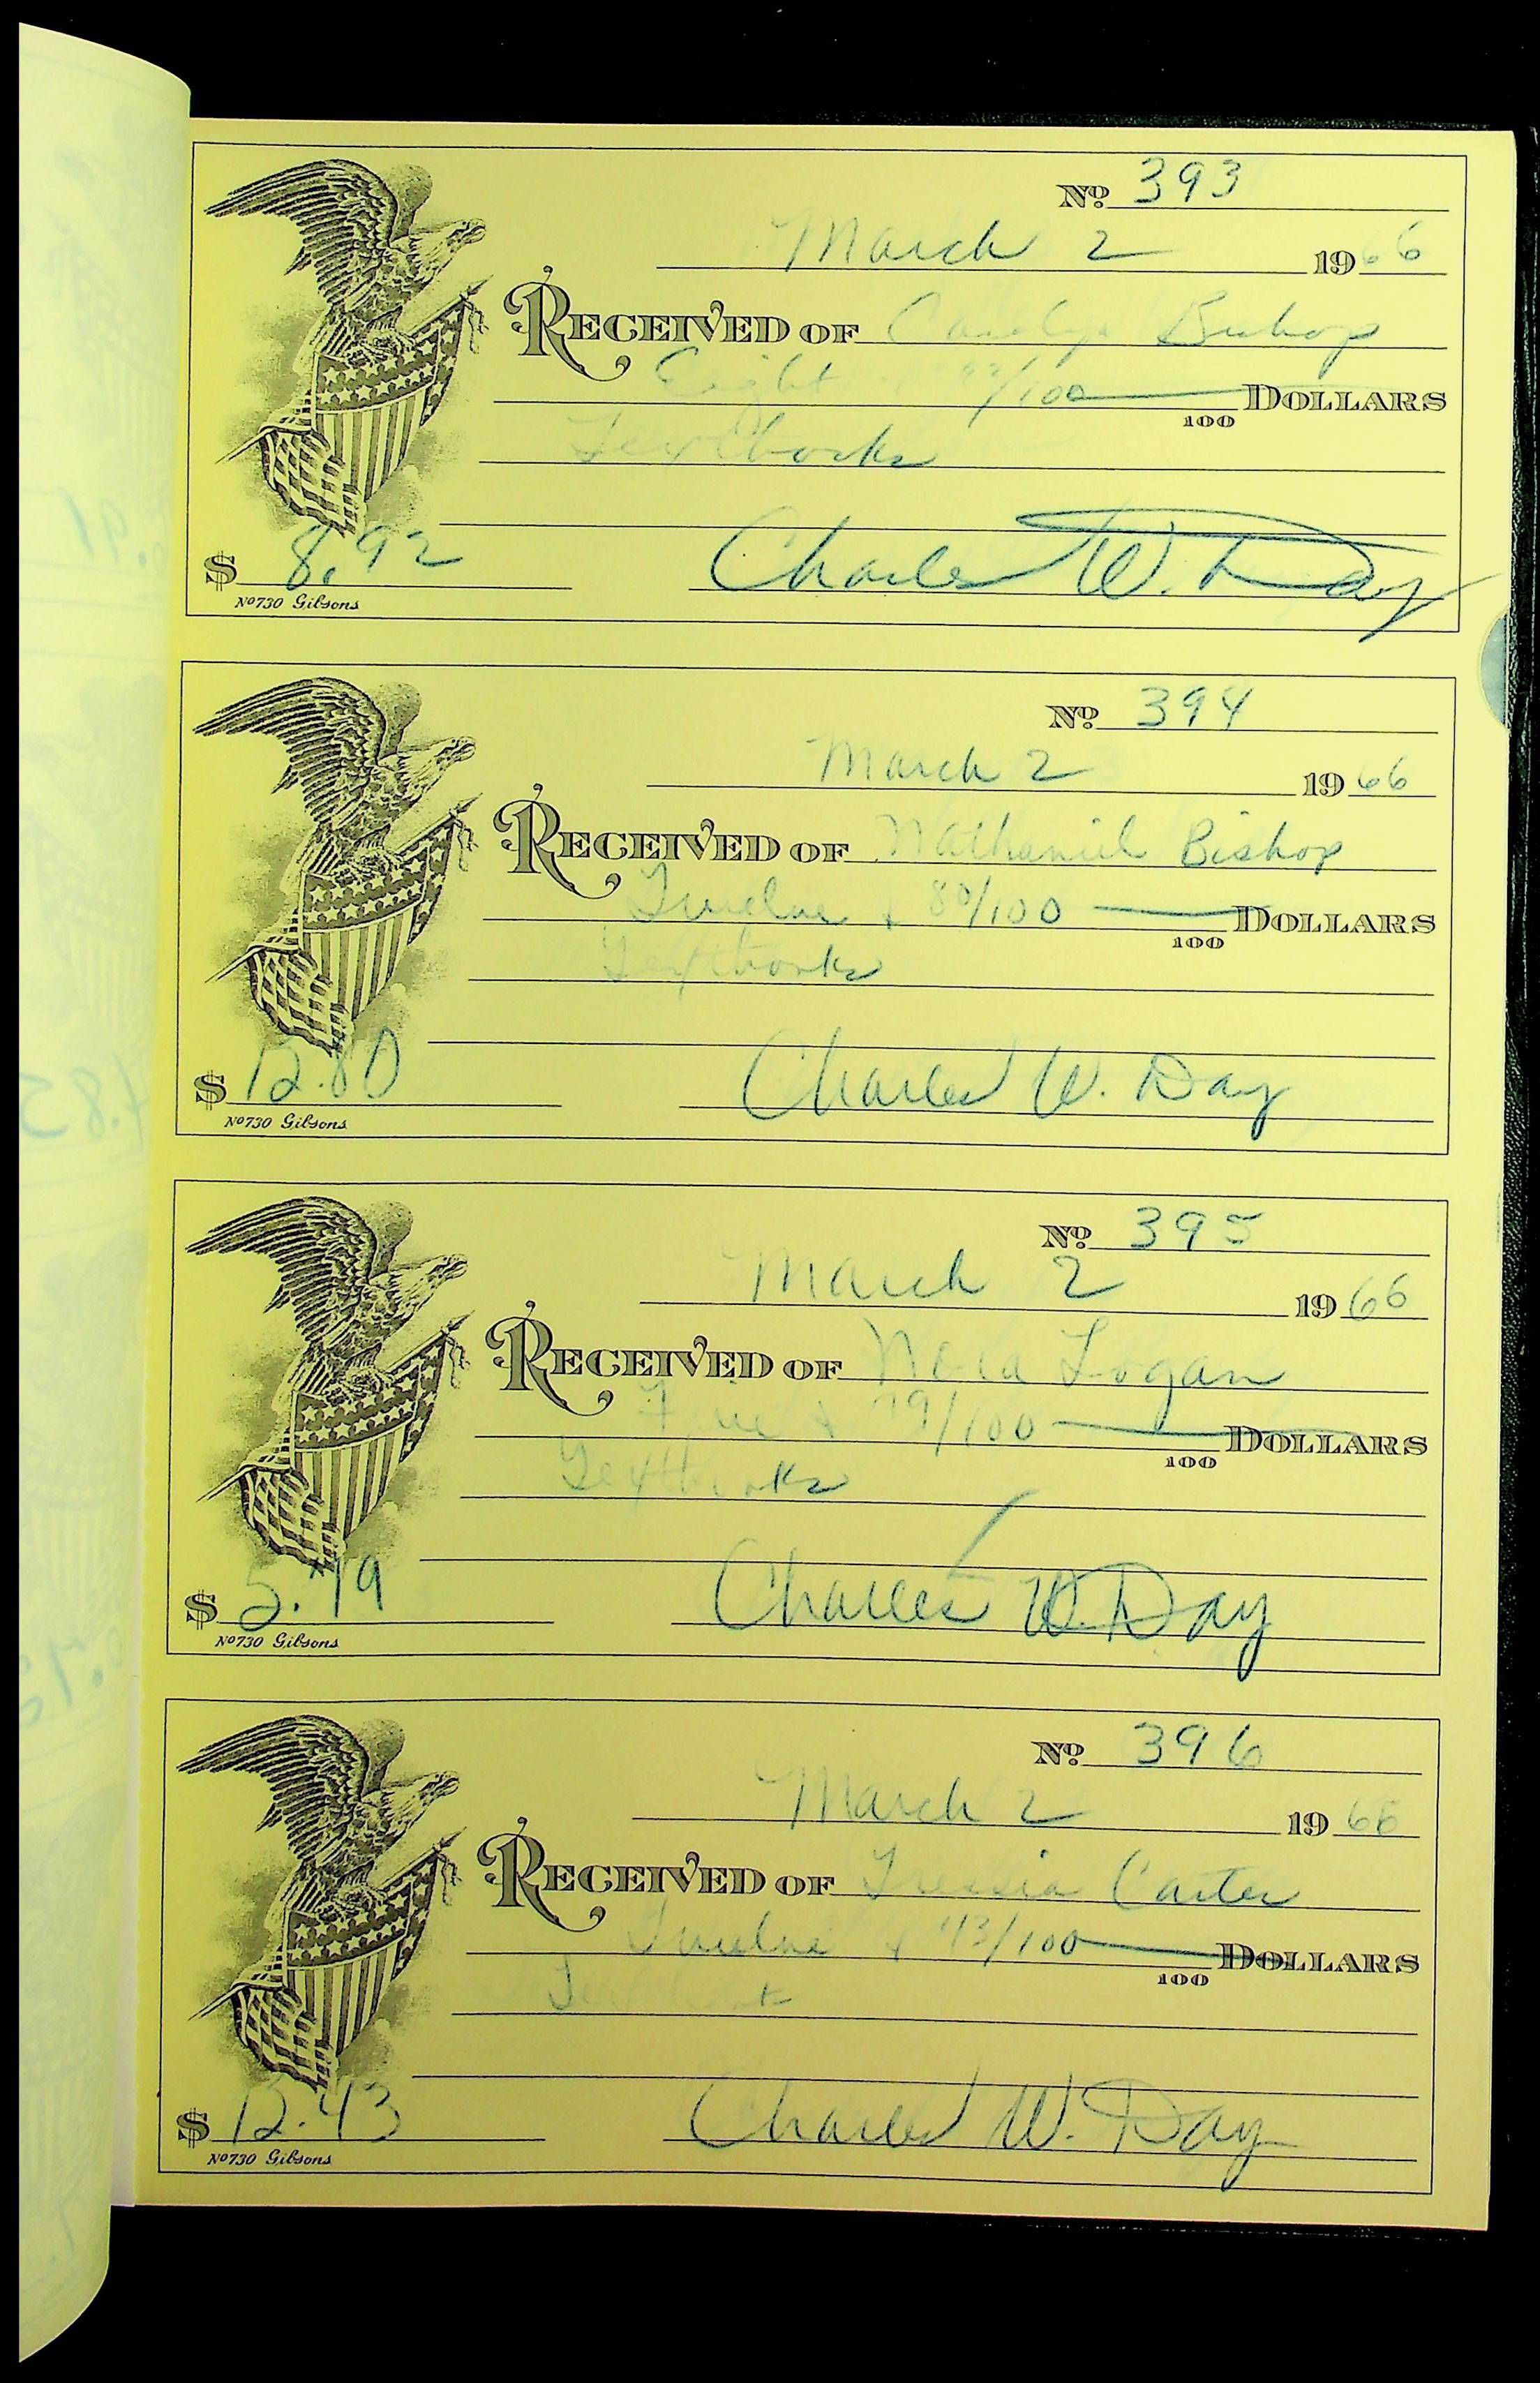 No. 393
March 2 1966
RECEIVED OF Carolyn Bishop
Eight 92/100 DOLLARS
100
Textbooks
$ 8.92 Charles W. Day
No 730 Gibsons
No. 394
March 2 1966
RECEIVED OF Nathaniel Bishop
Twelve & 80/100 DOLLARS
100
Textbooks
$ 12.80 Charles W. Day
No 730 Gibsons
No. 395
March 2 1966
RECEIVED OF Nora Logan
Five & 79/100 DOLLARS
100
Textbooks
$ 5.79 Charles W. Day
No 730 Gibsons
No. 396
March 2 1966
RECEIVED OF Tressia Carter
Twelve & 43/100 DOLLARS
100
$ 12.43 Charles W. Day
No 730 Gibsons